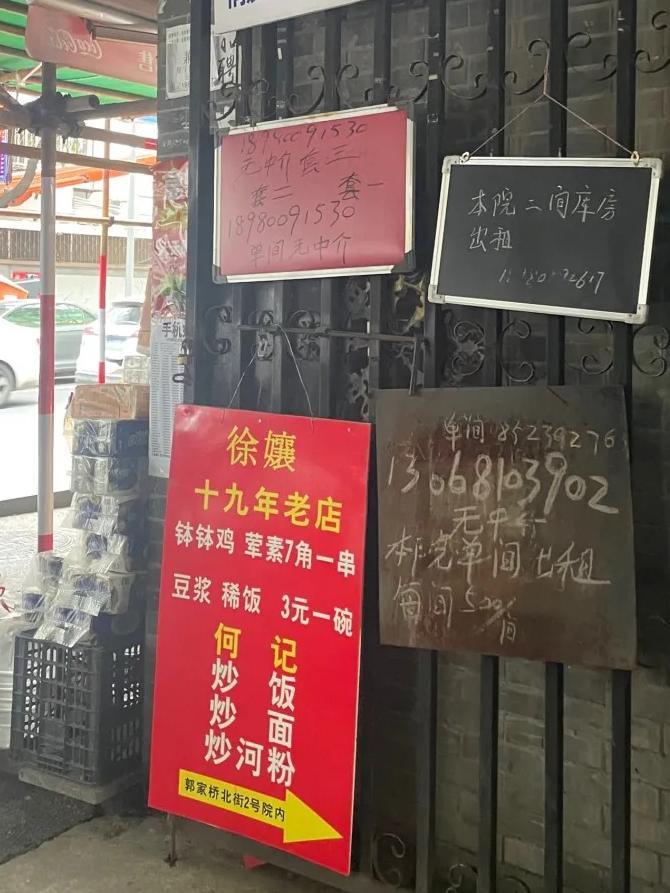 18980091530
无中介 套三
套二 套一
18980091530
单间无中介
本院二间库房
出租
徐孃
十九年老店
钵钵鸡 荤素7角一串
豆浆 稀饭 3元一碗
何记
炒饭
炒面
炒河粉
郭家桥北街2号院内
单间 85239276
13668103902
无中介
本院单间出租
每间500/月
手机
聘